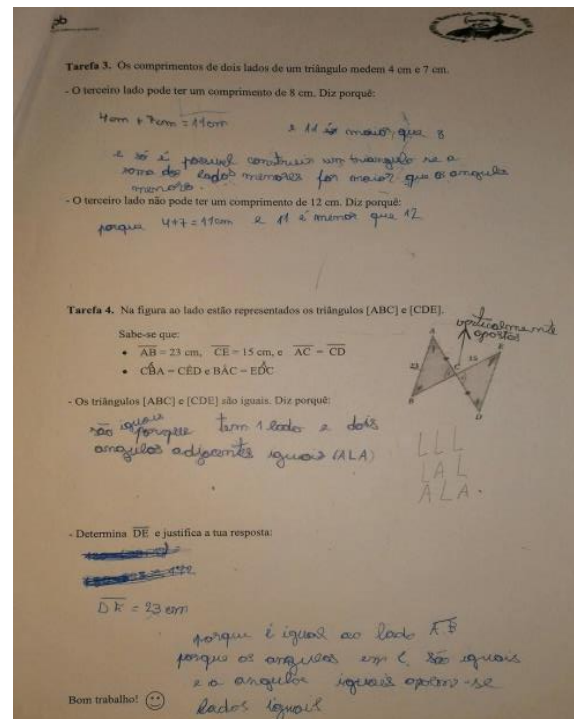 Tarefa 3. Os comprimentos de dois lados de um triângulo medem 4 cm e 7 cm.
- O terceiro lado pode ter um comprimento de 8 cm. Diz porquê:
4cm + 7cm = 11cm e 11 é maior que 8
e só é possivel construir um triangulo se a
soma dos lados menores for maior que os angulos
menores.
- O terceiro lado não pode ter um comprimento de 12 cm. Diz porquê:
porque 4+7 = 11cm e 11 é menor que 12
Tarefa 4. Na figura ao lado estão representados os triângulos [ABC] e [CDE].
verticalmente
opostos
Sabe-se que:
• AB = 23 cm, CE = 15 cm, e AC = CD
• CB̂A = CÊD e BÂC = ED̂C
A
E
23
15
C
B
D
- Os triângulos [ABC] e [CDE] são iguais. Diz porquê:
são iguais porque tem 1 lado e dois
angulos adjacentes iguais (ALA)
LLL
LAL
ALA.
- Determina DE e justifica a tua resposta:
DE = 23 cm
porque é igual ao lado AB
porque os angulos em C são iguais
e a angulos iguais opõem-se
lados iguais
Bom trabalho!